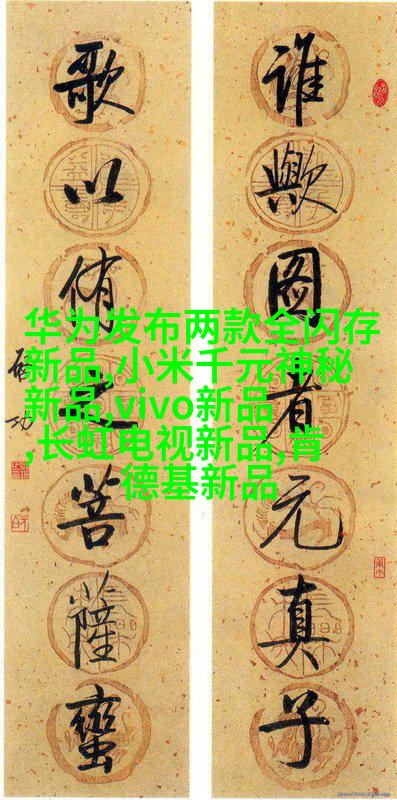 谁歟图者元真子
歌以侑之菩薩蠻
啓功
华为发布两款全闪存
新品,小米千元神秘
新品,vivo新品
,长虹电视新品,肯
德基新品